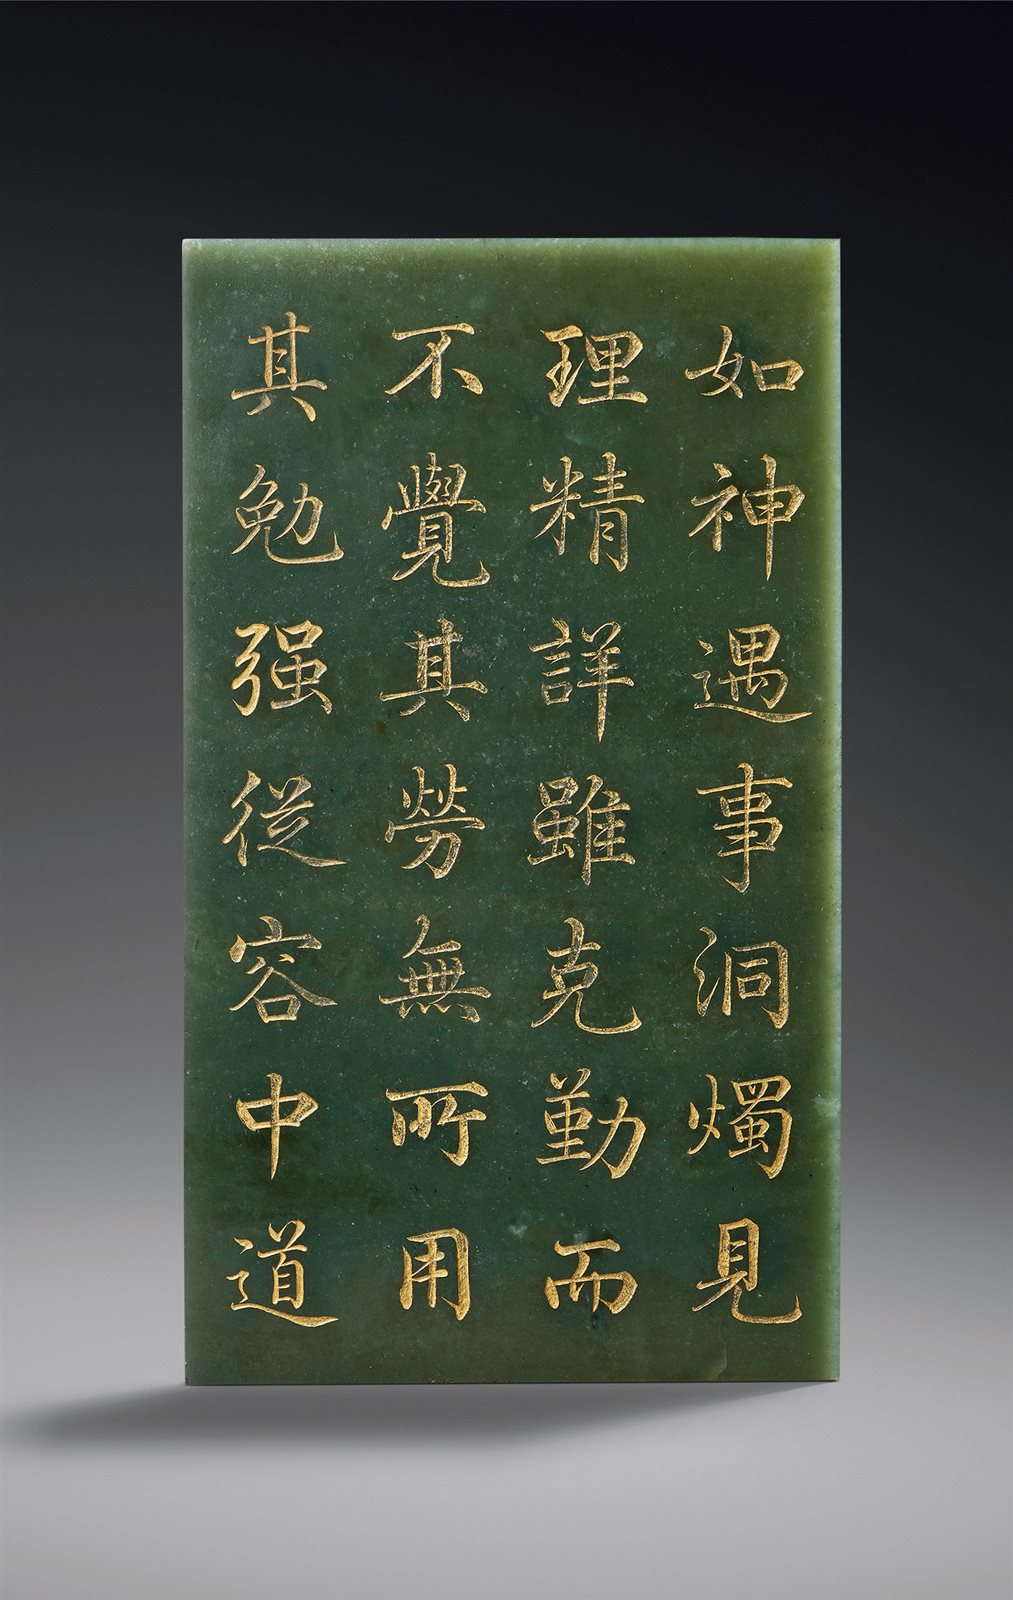 如神遇事洞燭見
理精詳雖克勤而
不覺其勞無所用
其勉强從容中道